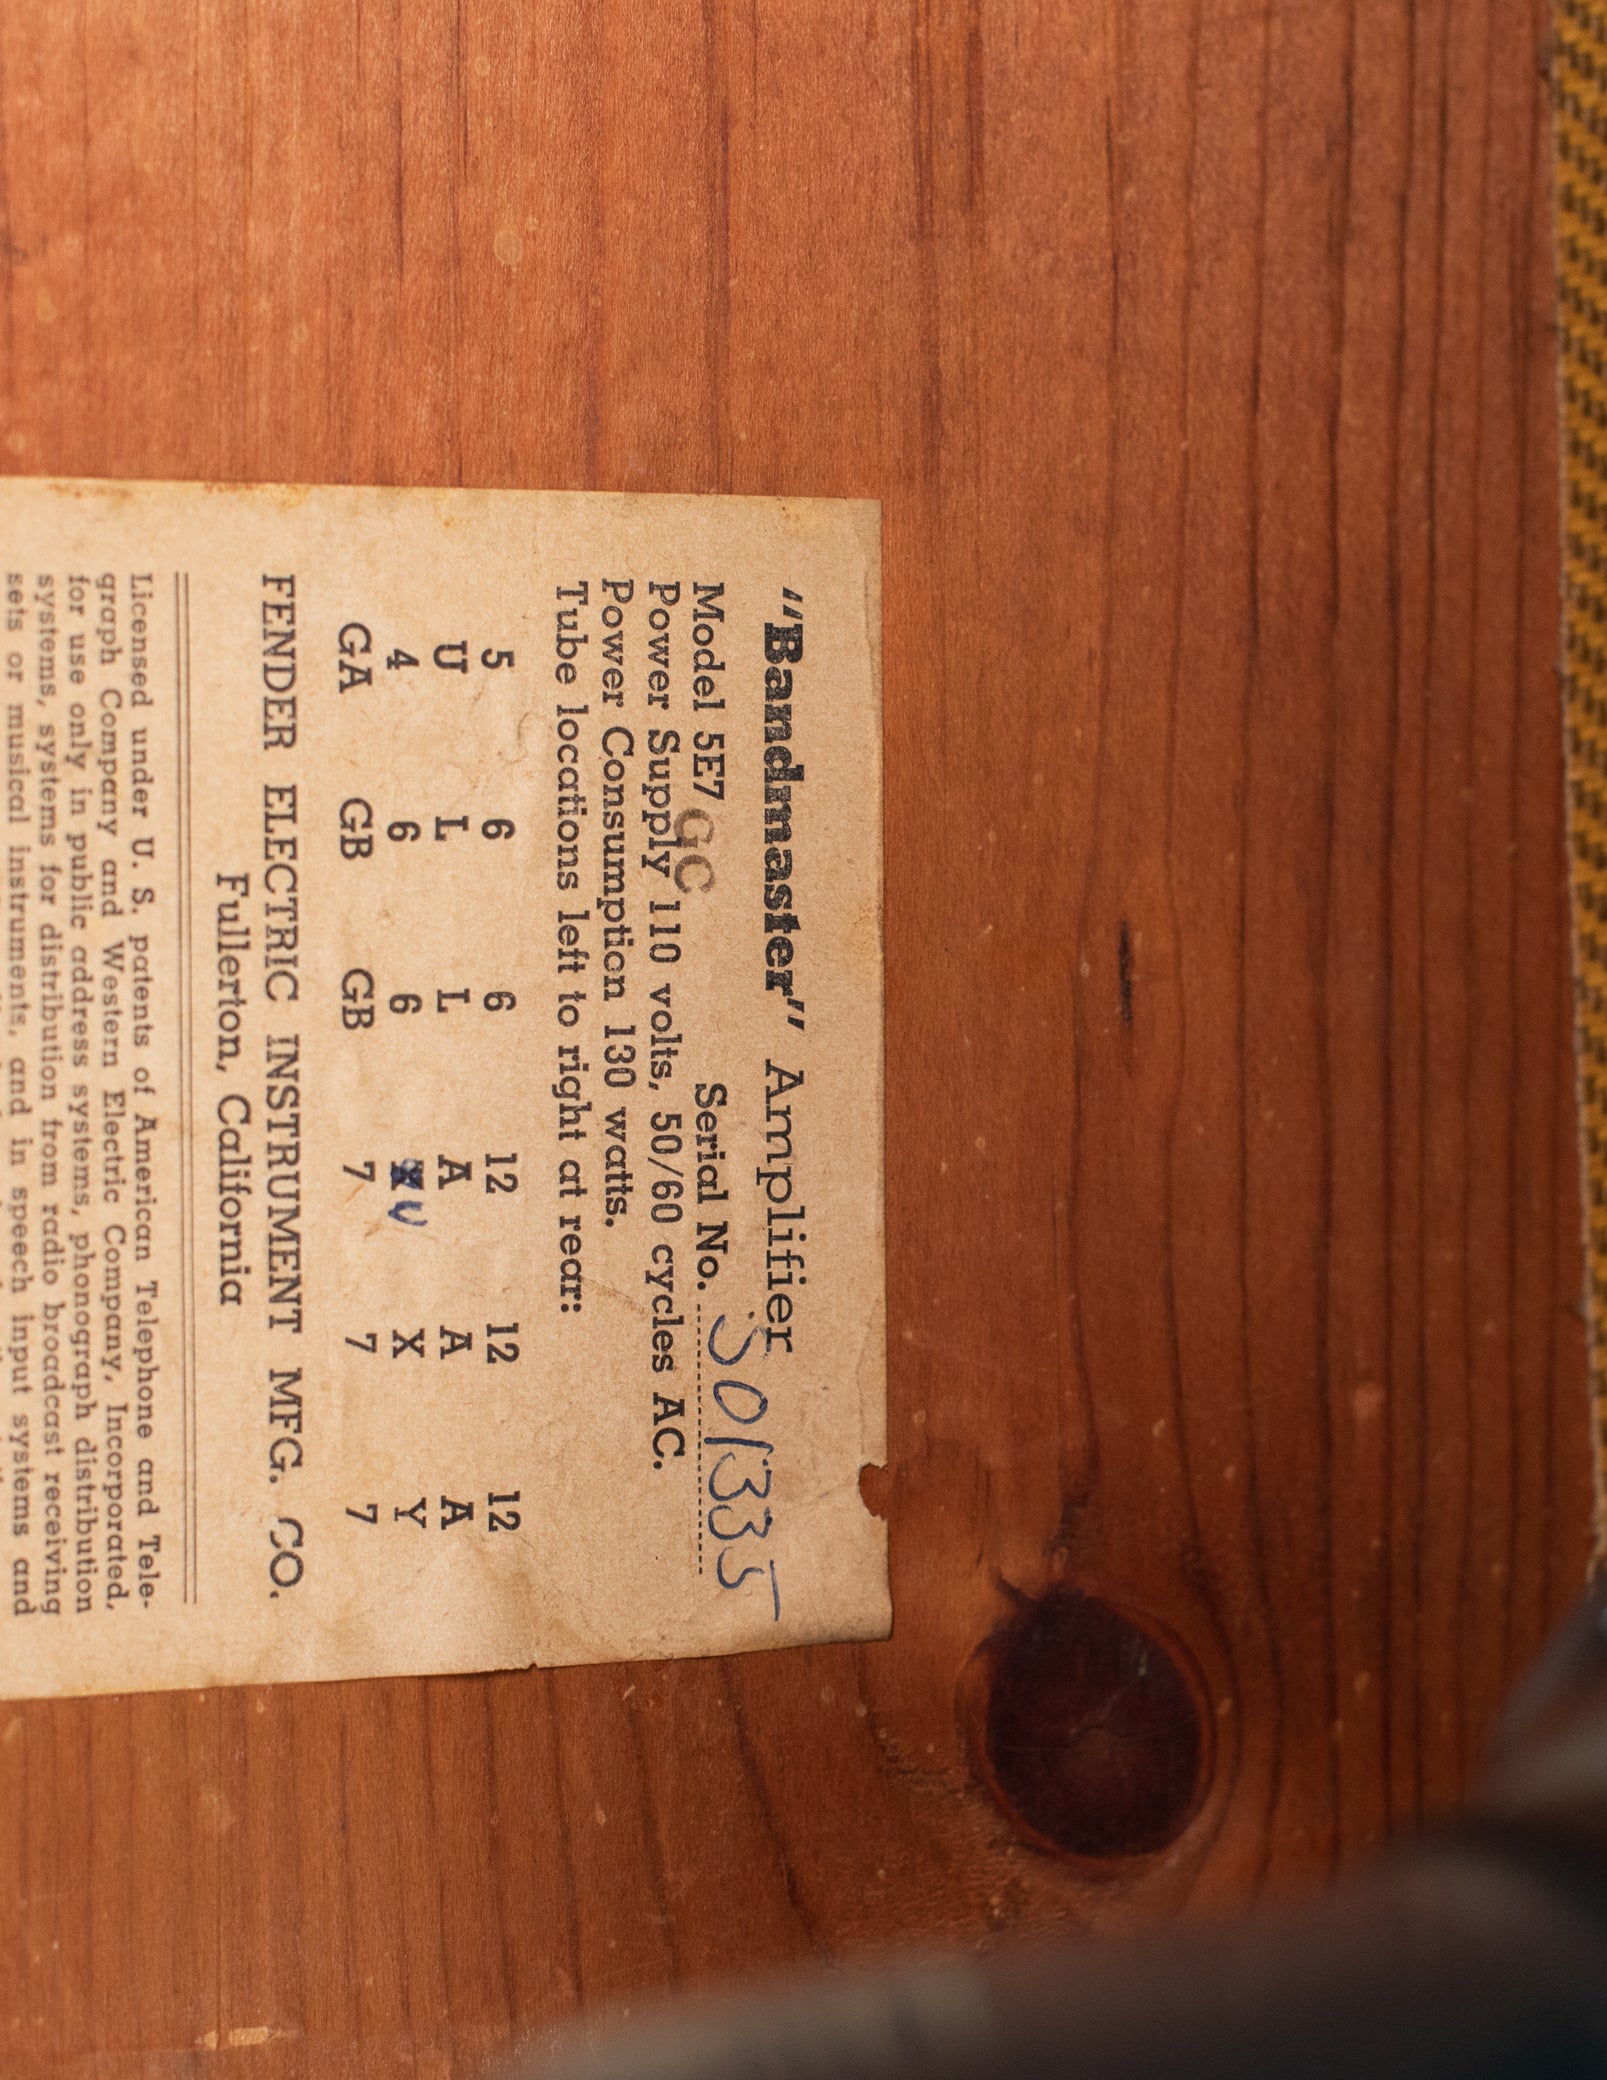 "Bandmaster" Amplifier
Model 5E7 GC Serial No. S01335
Power Supply 110 volts, 50/60 cycles AC.
Power Consumption 130 watts.
Tube locations left to right at rear:
5 6 6 12 12 12
U L L A A A
4 6 6 U X Y
GA GB GB 7 7 7
FENDER ELECTRIC INSTRUMENT MFG. CO.
Fullerton, California
Licensed under U. S. patents of American Telephone and Tele-
graph Company and Western Electric Company, Incorporated,
for use only in public address systems, phonograph distribution
systems, systems for distribution from radio broadcast receiving
sets or musical instruments, and in speech input systems and